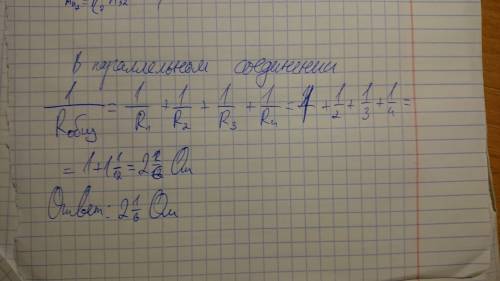 В параллельном соединении
1/Rобщ = 1/R1 + 1/R2 + 1/R3 + 1/R4 = 1 + 1/2 + 1/3 + 1/4 =
Ответ: 2 1/6 Ом